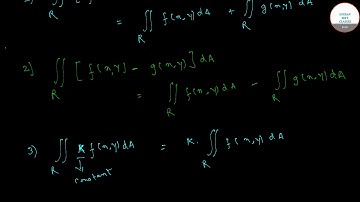 = ∬ f(x,y) dA + ∬ g(x,y) dA
R R
2] ∬ [ f(x,y) - g(x,y) ] dA
R
= ∬ f(x,y) dA - ∬ g(x,y) dA
R R
3) ∬ K f(x,y) dA = K. ∬ f(x,y) dA
R R
constant